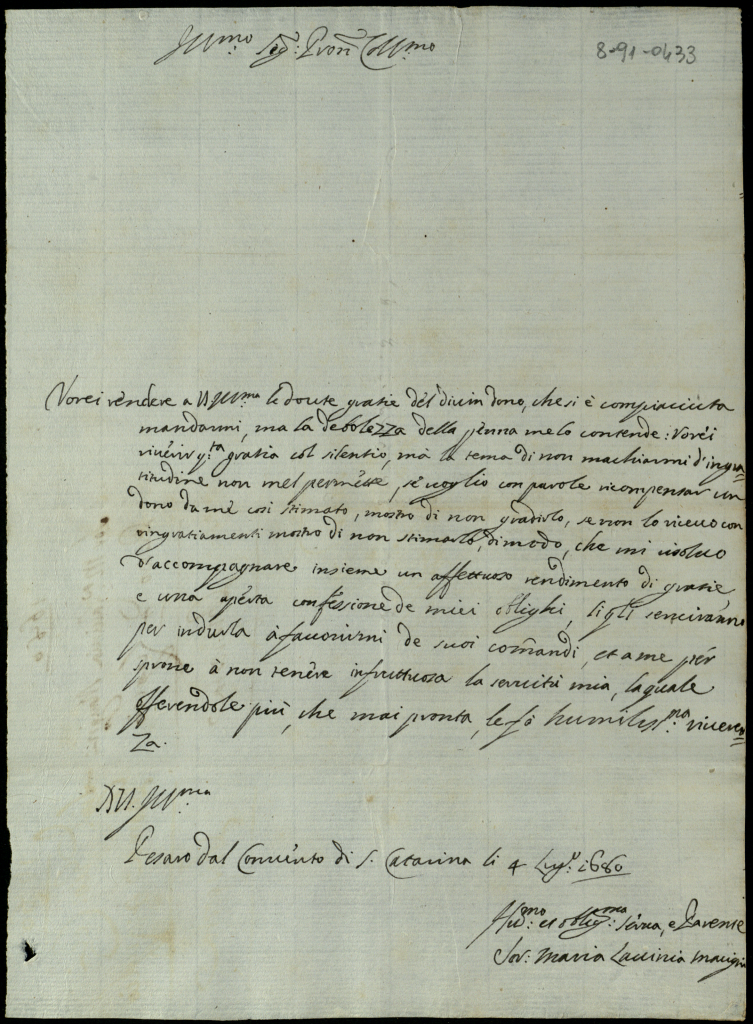 Illmo. Sigr. Pron. Collmo.
8-91-0433
Vorei rendere a VS Illma. le douute gratie del diuin dono, che si è compiacciuta
mandarmi, ma la debolezza della penna me lo contende: Vorei
riuerir q.ta gratia col silentio, mà la tema di non macchiarmi d'ingra=
titudine non mel permette, se uoglio con parole ricompensar un
dono da me così stimato, mostro di non gradirlo, se non lo riceuo con
ringratiamenti mostro di non stimarlo, dimodo, che mi risoluo
d'accompagnare insieme un affettuoso rendimento di gratie
e una aperta confessione de miei oblighi, li qli seruiranno
per indurla à fauorirmi de suoi comandi, et a me per
sprone à non tenere infruttuosa la seruitù mia, la quale
offerendole più, che mai pronta, le fò humiliss.ma riueren=
za.
D VS. Illma
Pesaro dal Conuento di S. Catarina li 4 Lugo. 1680
et obligma. serua, e Parente
Suor: Maria Lauinia